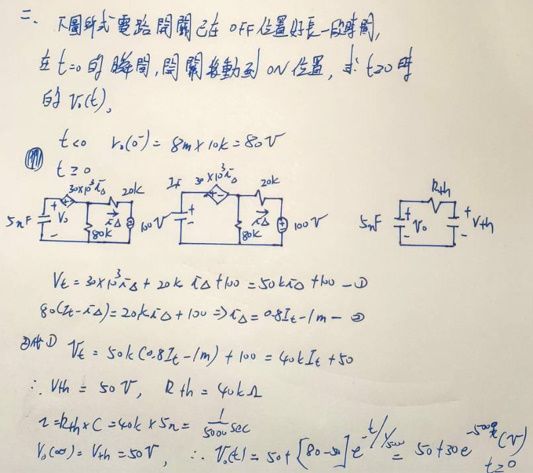 二、下圖所式電路開關已在OFF位置好長一段時間,
在t=0的瞬間,開關移動到ON位置,求t≥0時
的V₀(t)。
t<0 V₀(0⁻)=8m×10k=80V
t≥0
30×10³i△ 20k It 30×10³i△ 20k Rth
5nF + V₀ - 80k i△ 100V + - 80k i△ 100V 5nF + V₀ - + Vth -
Vt=30×10³i△+20k i△+100=50k i△+100 —①
80(It-i△)=20k i△+100⇒i△=0.8It-1m —②
②代① Vt=50k(0.8It-1m)+100=40kIt+50
∴Vth=50V, Rth=40kΩ
τ=Rth×C=40k×5n=1/5000 sec
V₀(∞)=Vth=50V, ∴V₀(t)=50+[80-50]e^-t/1/5000=50+30e^-5000t(V)
t≥0